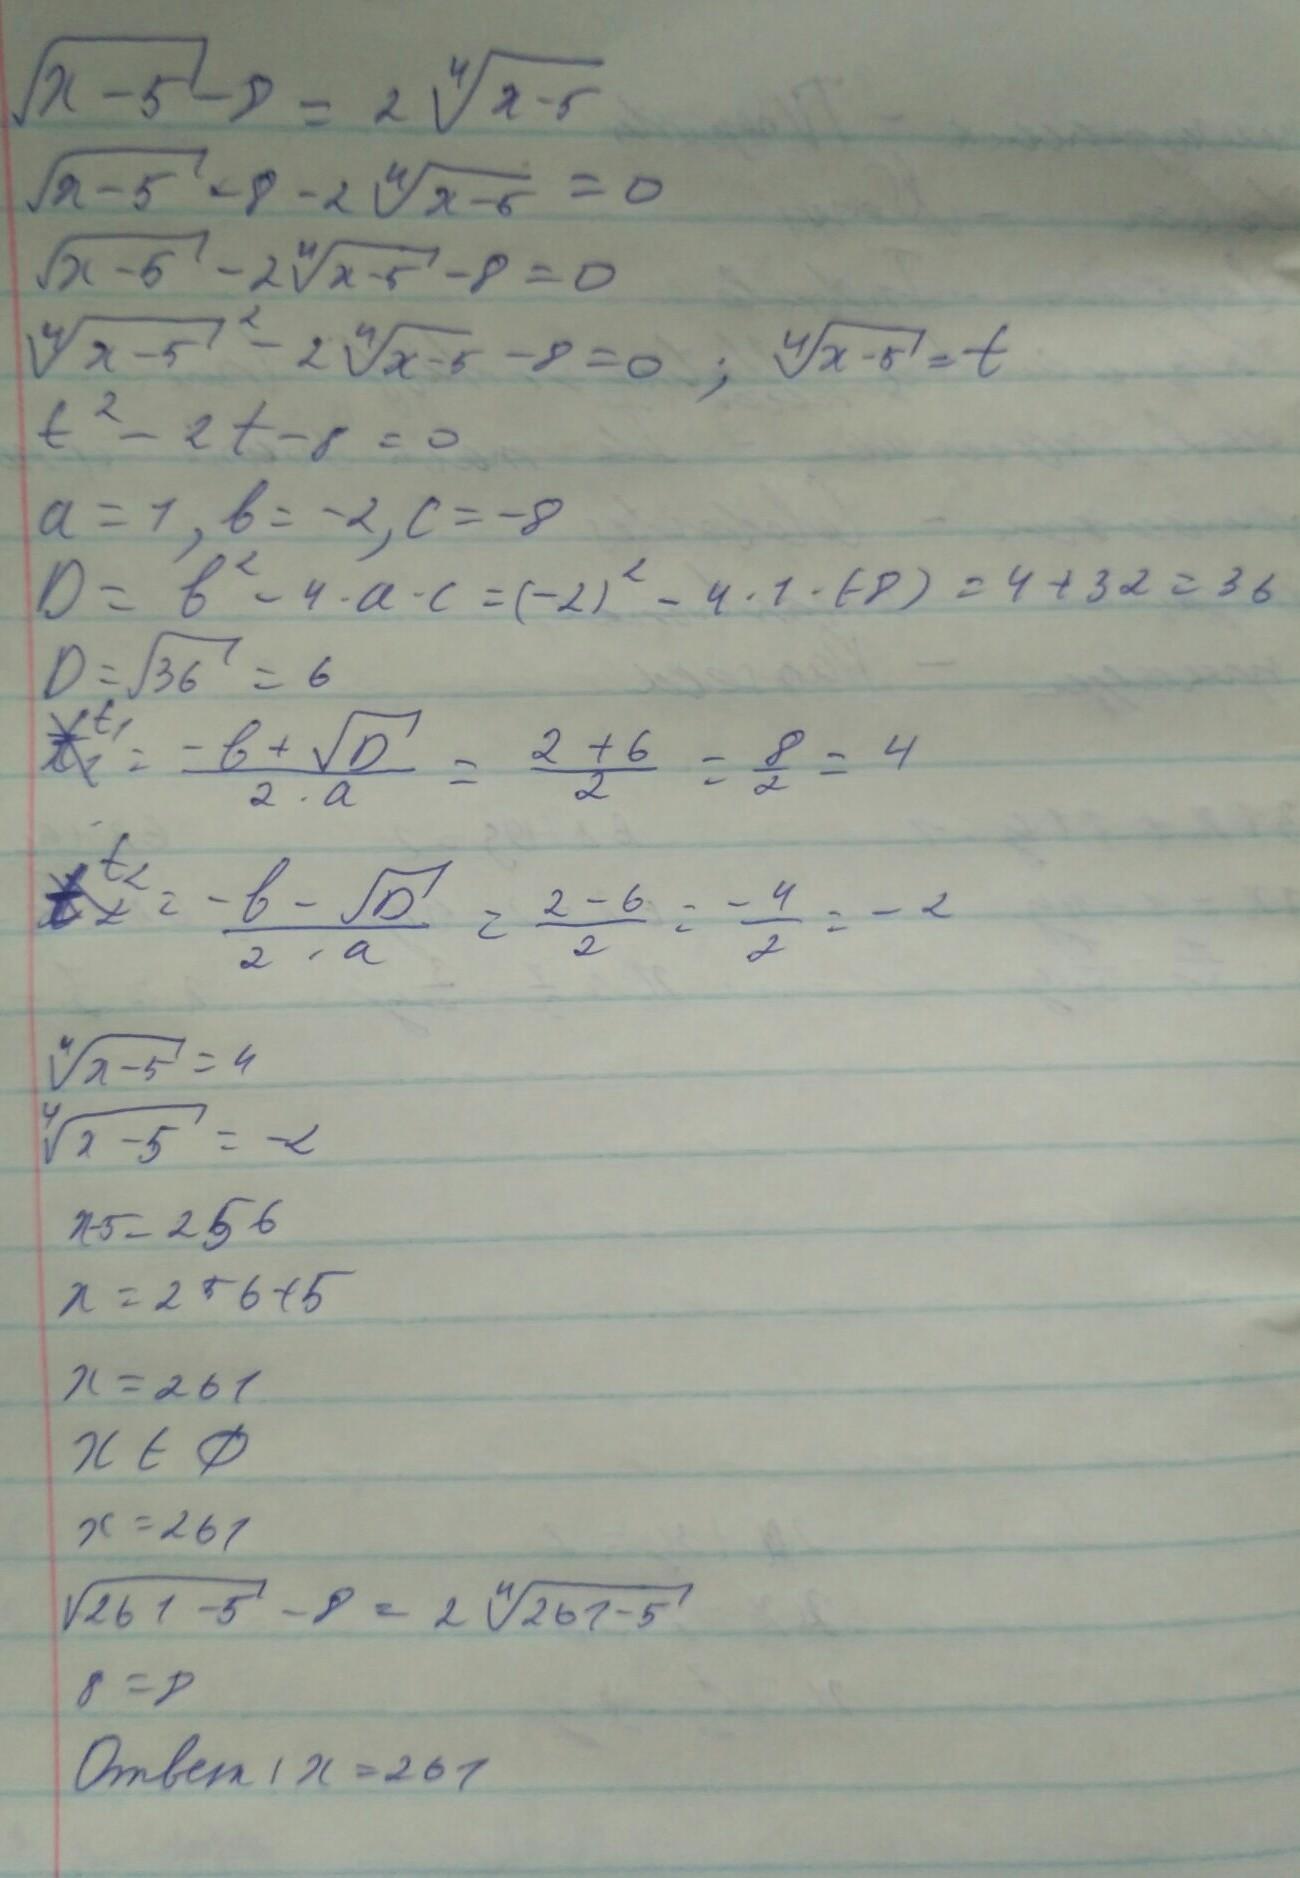 √x-5 - 8 = 2 ⁴√x-5
√x-5 - 8 - 2 ⁴√x-5 = 0
√x-5 - 2 ⁴√x-5 - 8 = 0
⁴√x-5² - 2 ⁴√x-5 - 8 = 0 ; ⁴√x-5 = t
t² - 2t - 8 = 0
a = 1, b = -2, c = -8
D = b² - 4·a·c = (-2)² - 4·1·(-8) = 4 + 32 = 36
D = √36 = 6
t₁ = (-b + √D)/(2·a) = (2 + 6)/2 = 8/2 = 4
t₂ = (-b - √D)/(2·a) = (2 - 6)/2 = -4/2 = -2
⁴√x-5 = 4
⁴√x-5 = -2
x-5 = 256
x = 256+5
x = 261
x ∈ ∅
x = 261
√261-5 - 8 = 2 ⁴√261-5
8 = 8
Ответ: x = 261